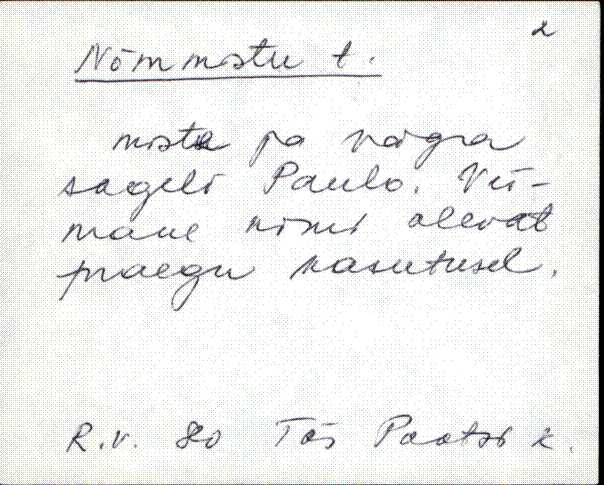 2
Nõmmistu t.
miste ja vägra
sageli Paulo. Vii-
mane nimi olevat
praegu kasutusel.
R.V. 80 Tõs Pootsi k.